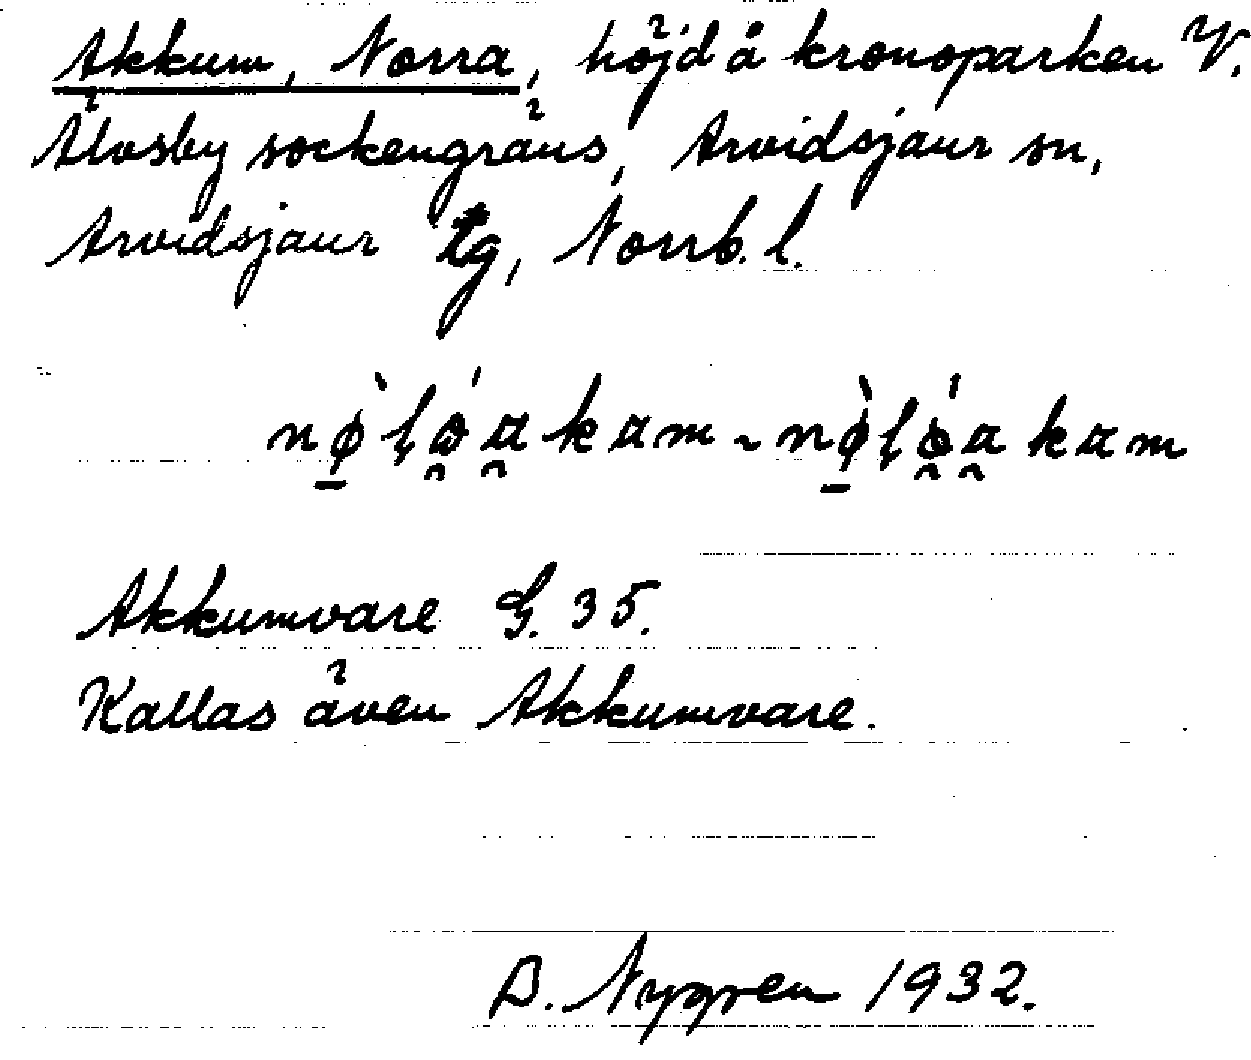 Akkum, Norra, höjd å kronoparken V.
Älvsby sockengräns, Arvidsjaur sn,
Arvidsjaur tg, Norrb. l.
Akkumvare G. 35.
Kallas även Akkumvare.
D. Nygren 1932.